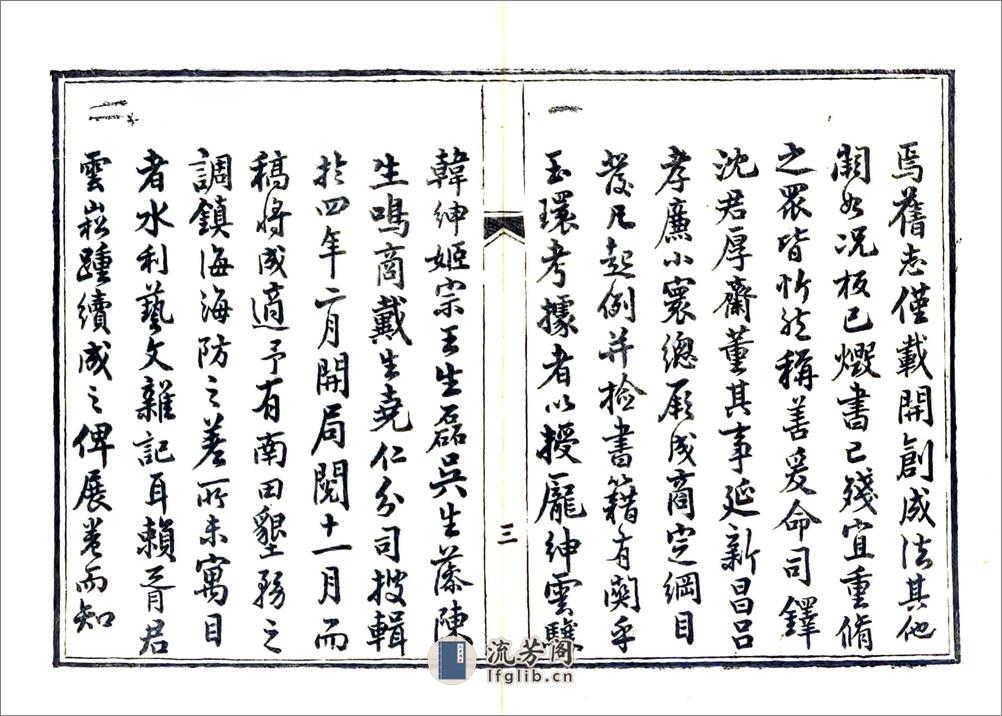 一
焉舊志僅載開創成法其他
闕如況板已燬書已殘宜重脩
之眾皆忻然稱善爰命司鐸
沈君厚齋董其事延新昌呂
孝廉小寰總厥成商定綱目
發凡起例并捡書籍有關乎
玉環考據者以授龐紳雲驤
三
韓紳姬宗王生磊吳生蓁陳
生鳴商戴生堯仁分司搜輯
於四年二月開局閱十一月而
稿將成適予有南田墾務之
調鎮海海防之差所未寓目
者水利藝文雜記耳賴胥君
雲崧踵續成之俾展卷而知
二
流芳阁
lfglib.cn